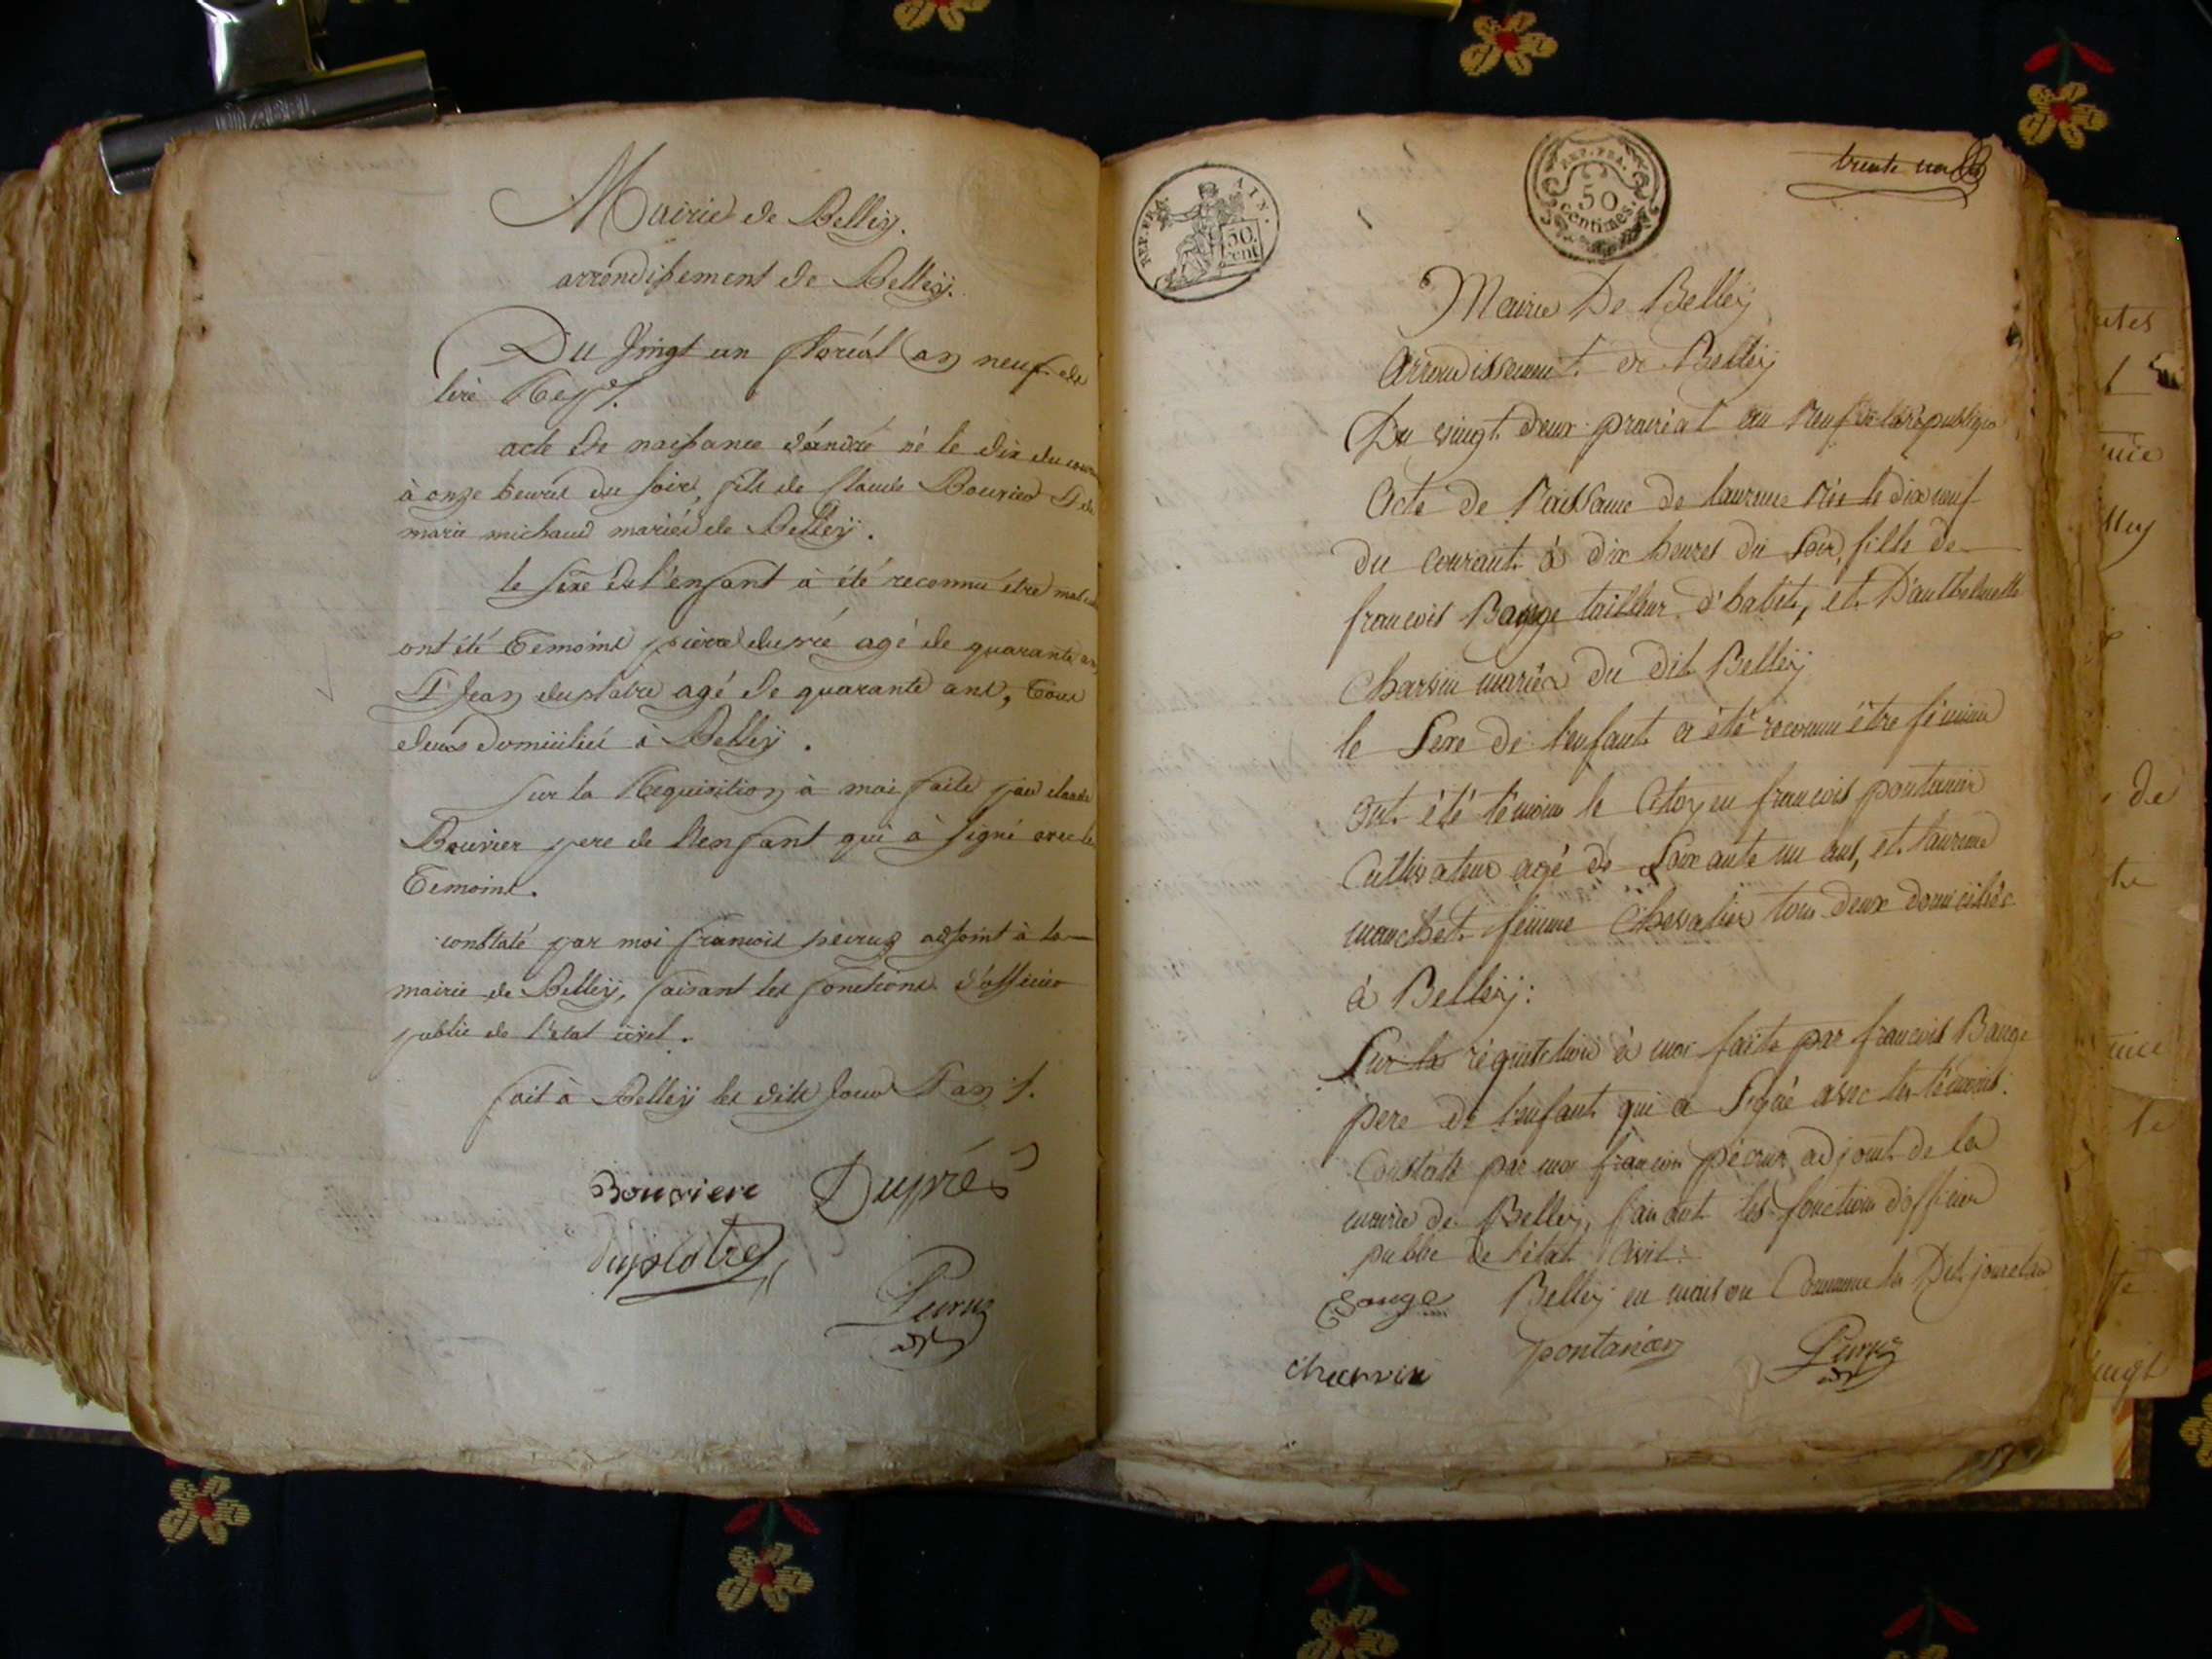 Mairie de Belleÿ.
arrondissement de Belleÿ.
Du Vingt un floréal an neuf de
l'ère Rep.
acte de naissance d'andré né le dix du
à onze heures du soir, fils de Claude Bouvier & de
marie michaud mariés de Belleÿ.
le sexe de l'enfant à été reconnu être
ont été Temoins pierre dupré agé de quarante
& Jean duplatre agé de quarante ans, Tous
deux domiciliés à Belleÿ.
sur la Requisition à moi faite par claude
Bouvier pere de l'enfant qui à signé avec les
Temoins.
constaté par moi francois peïruz adjoint à la
mairie de Belleÿ, faisant les fonctions d'officier
public de l'etat civil.
fait à Belleÿ les dits Jour & an
Bouviere Duprés
duplatre
Peïruz
REP. FRA. AIN.
50 cent
REP. FRA.
50
centimes.
trente un
Mairie De Belleÿ
Arrondissement de Belleÿ
Du vingt deux prairial an neuf de la Republique
Acte de Naissance de laurence née le dix neuf
du courant à dix heures du Soir, fille de
francois Bauge tailleur d'habits, et
Charvin mariés du dit Belleÿ
le Sexe de l'enfant a été reconnu être féminin
Ont été témoins le Citoyen francois pontanier
Cultivateur agé de Soixante un ans, et laurence
manchet femme Chevalier tous deux domiciliés
à Belleÿ:
Sur la réquisition à moi faite par francois Bauge
pere de l'enfant qui a Signé avec les témoins.
Constaté par moi francois peïruz adjoint de la
mairie de Belleÿ, faisant les fonctions d'officier
public de l'état civil:
Belleÿ en maison Commune les Dits jour et an
Bauge
charvin pontanier Peïruz